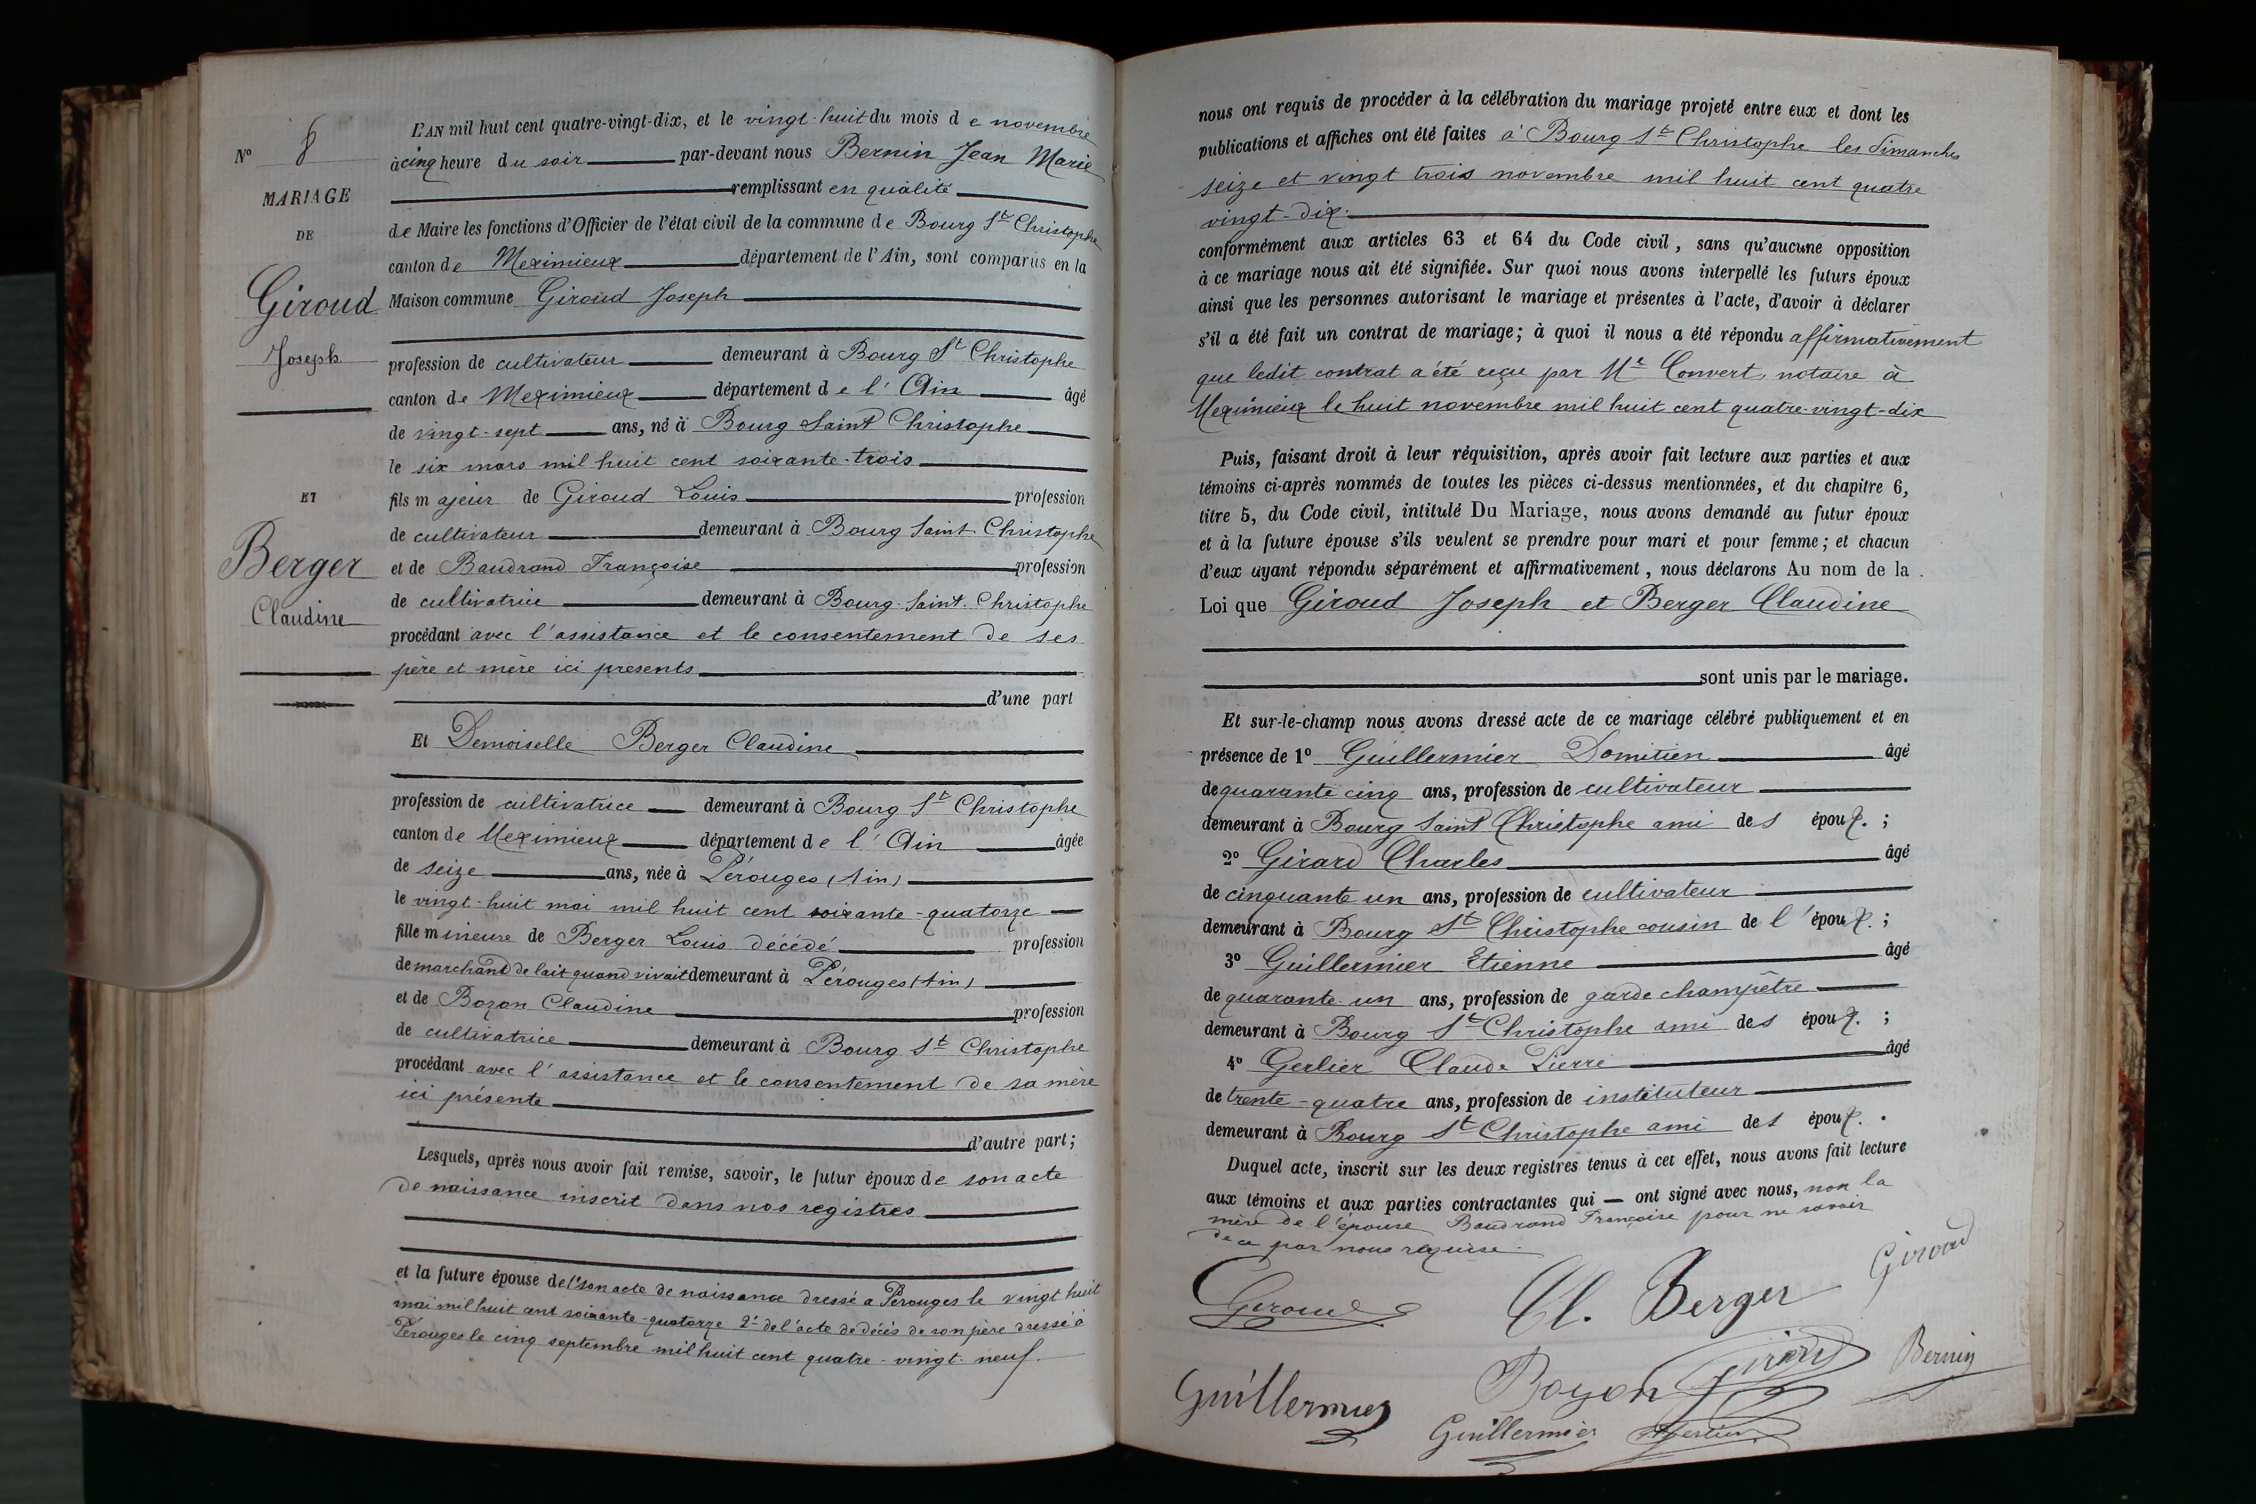 N° 8
MARIAGE
DE
Giroud
Joseph
ET
Berger
Claudine
L'AN mil huit cent quatre-vingt-dix, et le vingt-huit du mois de novembre
à cinq heure du soir par-devant nous Bernin Jean Marie
remplissant en qualité
de Maire les fonctions d'Officier de l'état civil de la commune de Bourg St Christophe
canton de Meximieux département de l'Ain, sont comparus en la
Maison commune Giroud Joseph
profession de cultivateur demeurant à Bourg St Christophe
canton de Meximieux département de l'Ain âgé
de vingt-sept ans, né à Bourg Saint Christophe
le six mars mil huit cent soixante-trois
fils majeur de Giroud Louis profession
de cultivateur demeurant à Bourg Saint Christophe
et de Baudrand Françoise profession
de cultivatrice demeurant à Bourg-Saint-Christophe
procédant avec l'assistance et le consentement de ses
père et mère ici présents
d'une part
Et Demoiselle Berger Claudine
profession de cultivatrice demeurant à Bourg St Christophe
canton de Meximieux département de l'Ain âgée
de seize ans, née à Pérouges (Ain)
le vingt-huit mai mil huit cent soixante-quatorze
fille mineure de Berger Louis décédé profession
de marchand de lait quand vivait demeurant à Pérouges (Ain)
et de Bozon Claudine profession
de cultivatrice demeurant à Bourg St Christophe
procédant avec l'assistance et le consentement de sa mère
ici présente
d'autre part;
Lesquels, après nous avoir fait remise, savoir, le futur époux de son acte
de naissance inscrit dans nos registres
et la future épouse de 1° son acte de naissance dressé à Pérouges le vingt huit
mai mil huit cent soixante-quatorze 2° de l'acte de décès de son père dressé à
Pérouges le cinq septembre mil huit cent quatre-vingt-neuf.
nous ont requis de procéder à la célébration du mariage projeté entre eux et dont les
publications et affiches ont été faites à Bourg St Christophe les dimanches
seize et vingt trois novembre mil huit cent quatre
vingt-dix.
conformément aux articles 63 et 64 du Code civil, sans qu'aucune opposition
à ce mariage nous ait été signifiée. Sur quoi nous avons interpellé les futurs époux
ainsi que les personnes autorisant le mariage et présentes à l'acte, d'avoir à déclarer
s'il a été fait un contrat de mariage; à quoi il nous a été répondu affirmativement
que ledit contrat a été reçu par Me Convert, notaire à
Meximieux le huit novembre mil huit cent quatre-vingt-dix
Puis, faisant droit à leur réquisition, après avoir fait lecture aux parties et aux
témoins ci-après nommés de toutes les pièces ci-dessus mentionnées, et du chapitre 6,
titre 5, du Code civil, intitulé Du Mariage, nous avons demandé au futur époux
et à la future épouse s'ils veulent se prendre pour mari et pour femme; et chacun
d'eux ayant répondu séparément et affirmativement, nous déclarons Au nom de la
Loi que Giroud Joseph et Berger Claudine
sont unis par le mariage.
Et sur-le-champ nous avons dressé acte de ce mariage célébré publiquement et en
présence de 1° Guillermier Domitien âgé
de quarante cinq ans, profession de cultivateur
demeurant à Bourg Saint Christophe ami des époux.;
2° Girard Charles âgé
de cinquante un ans, profession de cultivateur
demeurant à Bourg St Christophe cousin de l'époux.;
3° Guillermier Etienne âgé
de quarante-un ans, profession de garde champêtre
demeurant à Bourg St Christophe ami des époux.;
4° Gerlier Claude Pierre âgé
de trente-quatre ans, profession de instituteur
demeurant à Bourg St Christophe ami des époux.
Duquel acte, inscrit sur les deux registres tenus à cet effet, nous avons fait lecture
aux témoins et aux parties contractantes qui — ont signé avec nous, non la
mère de l'épouse Baudrand Françoise pour ne savoir
de ce par nous requise.
Giroud
Cl. Berger
Giroud
Guillermier
Bozon
Girard
Bernin
Guillermier
Gerlier